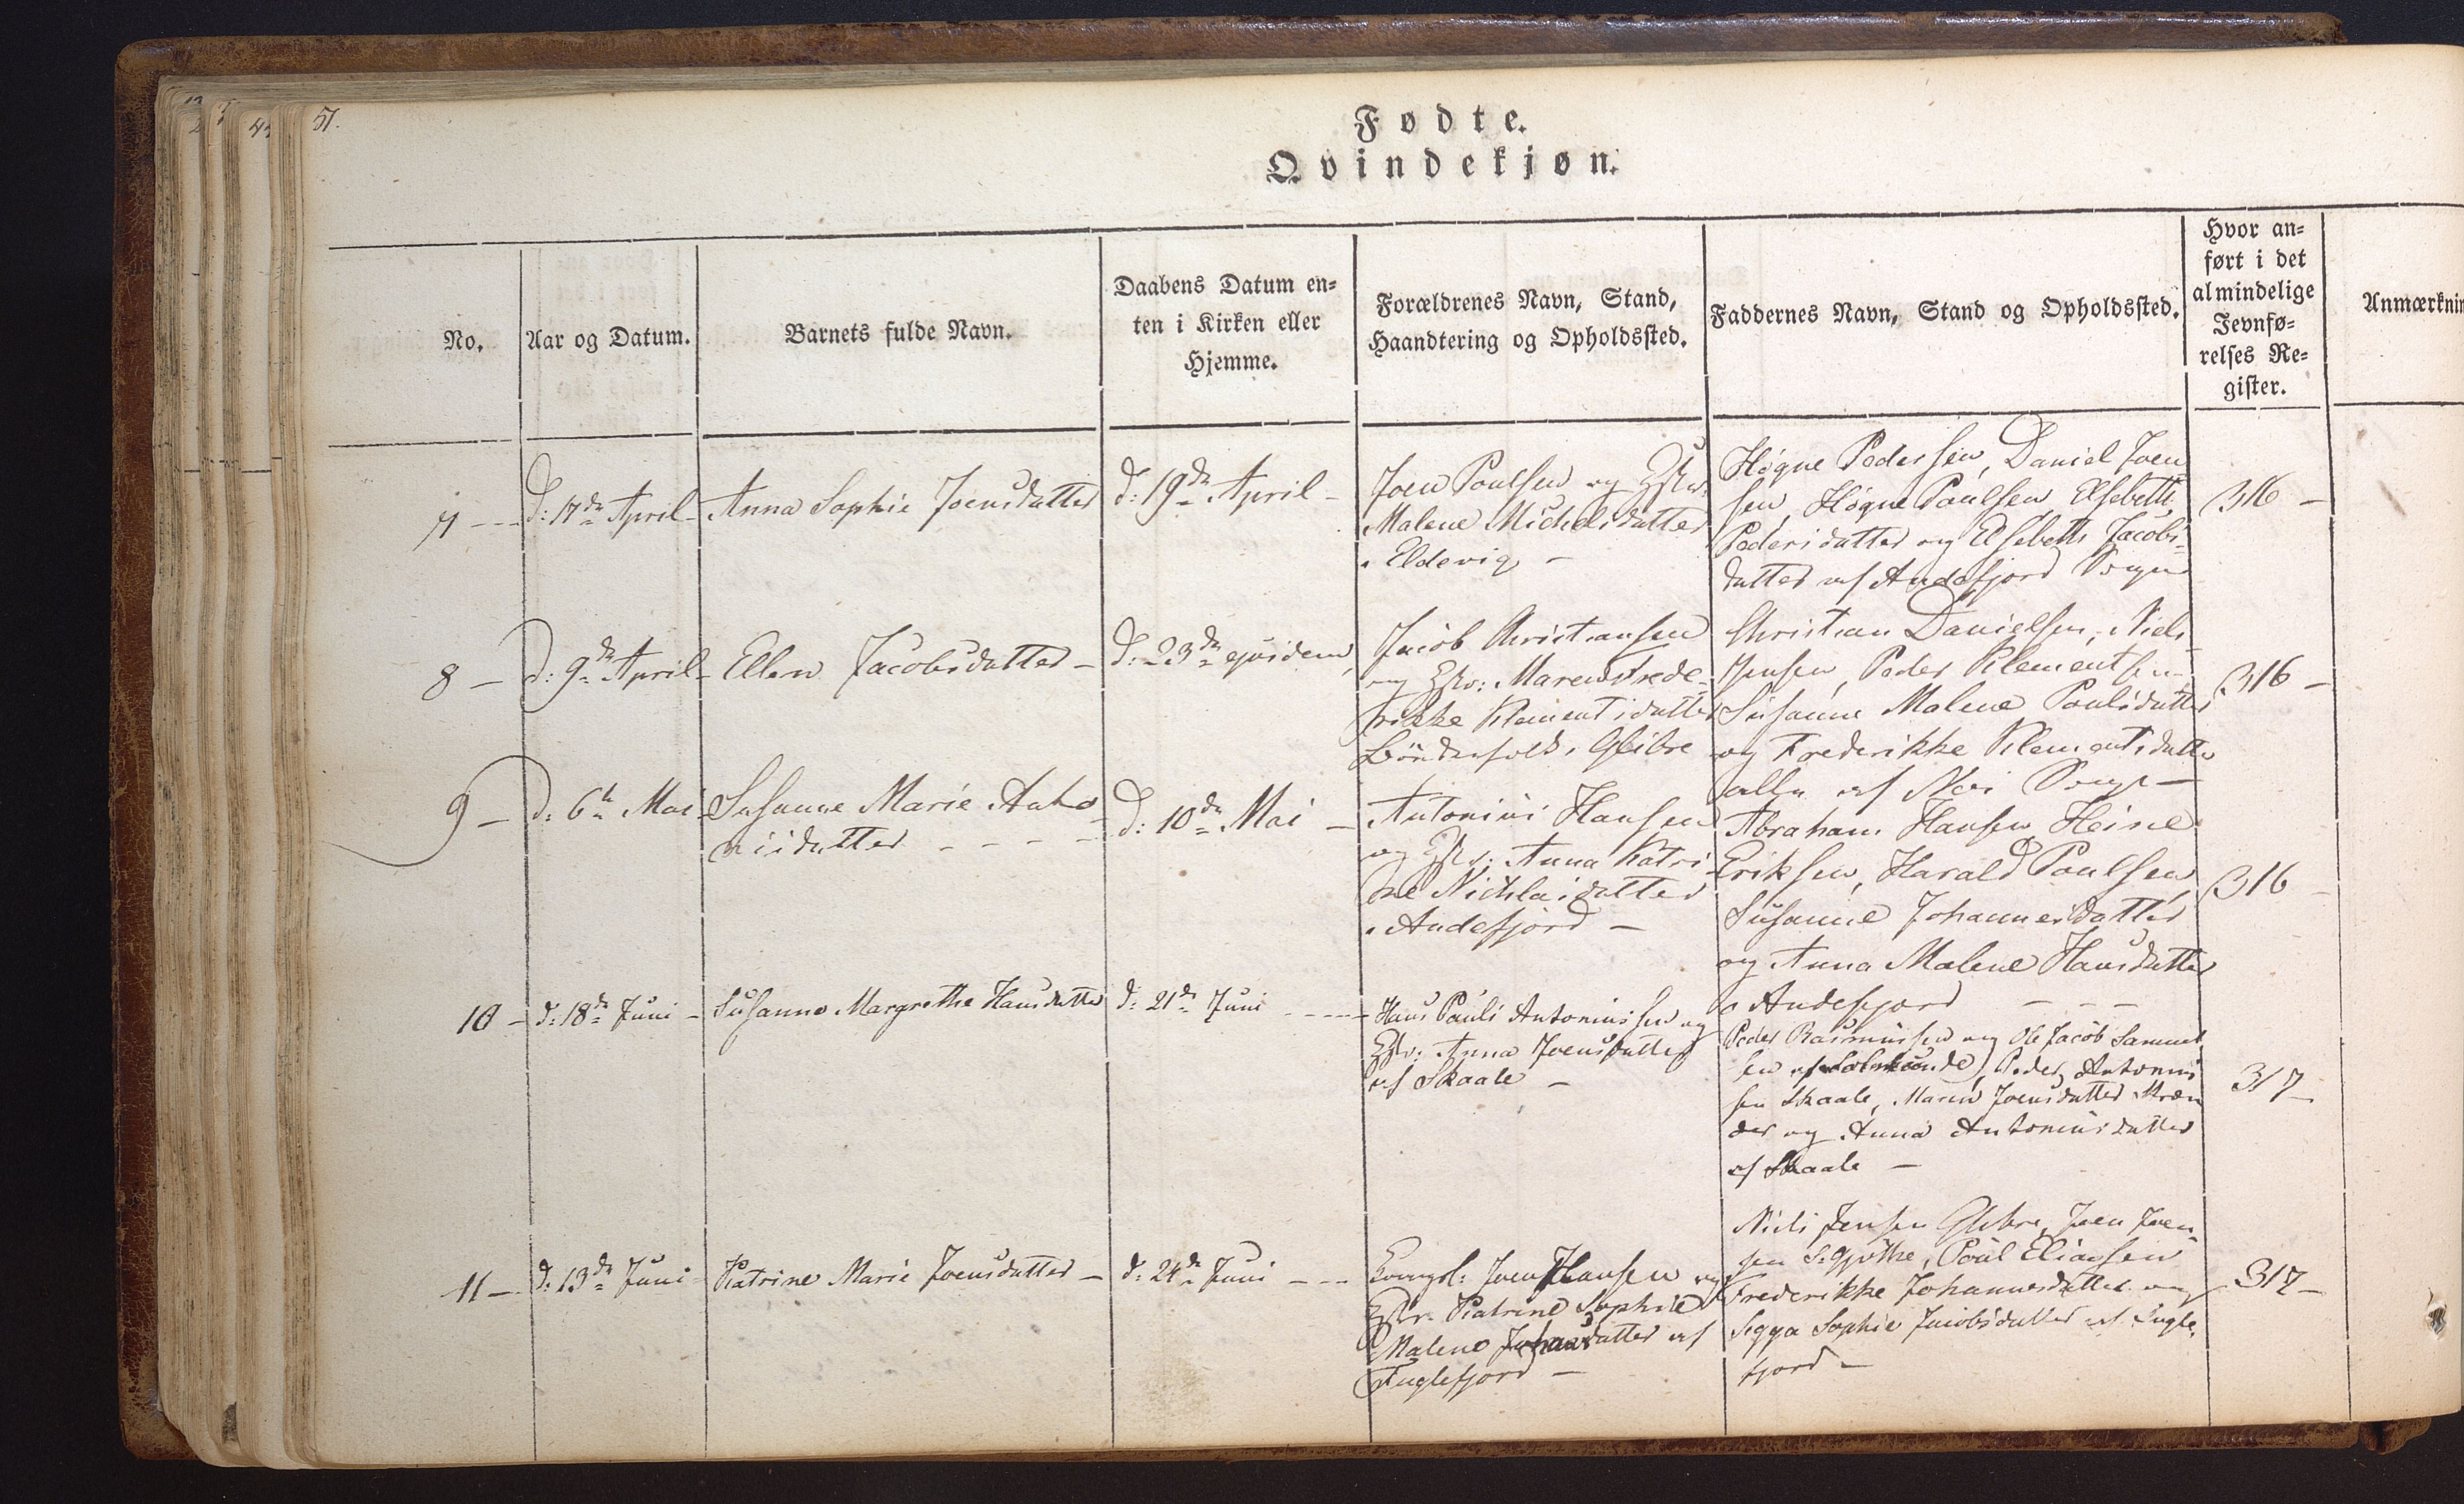 57.
Fødte.
Qvindekjøn.
No.
Aar og Datum.
Barnets fulde Navn.
Daabens Datum en-
ten i Kirken eller
Hjemme.
Forældrenes Navn, Stand,
Haandtering og Opholdssted.
Faddernes Navn, Stand og Opholdssted.
Hvor an-
ført i det
almindelige
Jevnfø-
relses Re-
gister.
Anmærknin
7 -
d: 17de April
Anna Sophie Joensdatter
d: 19de April -
Joen Poulsen og Hstr:
Malene Michelsdatter
i Eldevig -
Høgne Pedersen, Daniel Joen
sen, Høgne Poulsen, Elsebeth
Pedersdatter og Elsebeth Jacobs-
datter af Andefjord Sogn
316 -
8 -
d: 9de April
Ellen Jacobsdatter -
d: 23de ejusdem
Jacob Christiansen
og Hstr: Maren Frede-
rikke Klementsdatter
Bønderfolk i Glibre
Christian Danielsen, Niels
Jensen, Peder Klementsen
Susanne Malene Poulsdatter
og Frederikke Klementsdatter
alle af Sogn -
316 -
9 -
d: 6te Mai
Susanne Marie Anto
niidatter - - - -
d: 10de Mai -
Antonius Hansen
og Hstr: Anna Katri-
ne Nicklasdatter
i Andefjord -
Abraham Hansen, Heine
Eriksen, Harald Poulsen
Susanne Johannesdatter
og Anna Malene Hansdatter
i Andefjord - - -
316 -
10 -
d: 18de Juni -
Susanne Margrethe Hansdatter
d: 21de Juni - - -
Hans Pauli Antoniussen og
Hstr: Anna Joensdatter
af Skaale -
Peder Rasmussen og Ole Jacob Samuel
sen af Peder Antonius
sen Skaale, Maren Joensdatter
og Anna Antoniusdatter
af Skaale -
317 -
11 -
d: 13de Juni
Katrine Marie Joensdatter -
d: 24de Juni - - -
Joen Hansen og
Hstr: Katrine Sophie
Malene Johansdatter af
Fuglefjord -
Niels Jensen Glibre, Joen Joen-
sen S. Gjøthe, Poul Eliasen
Frederikke Johannesdatter og
Sigga Sophie Jacobsdatter af Fugle-
fjord -
317 -